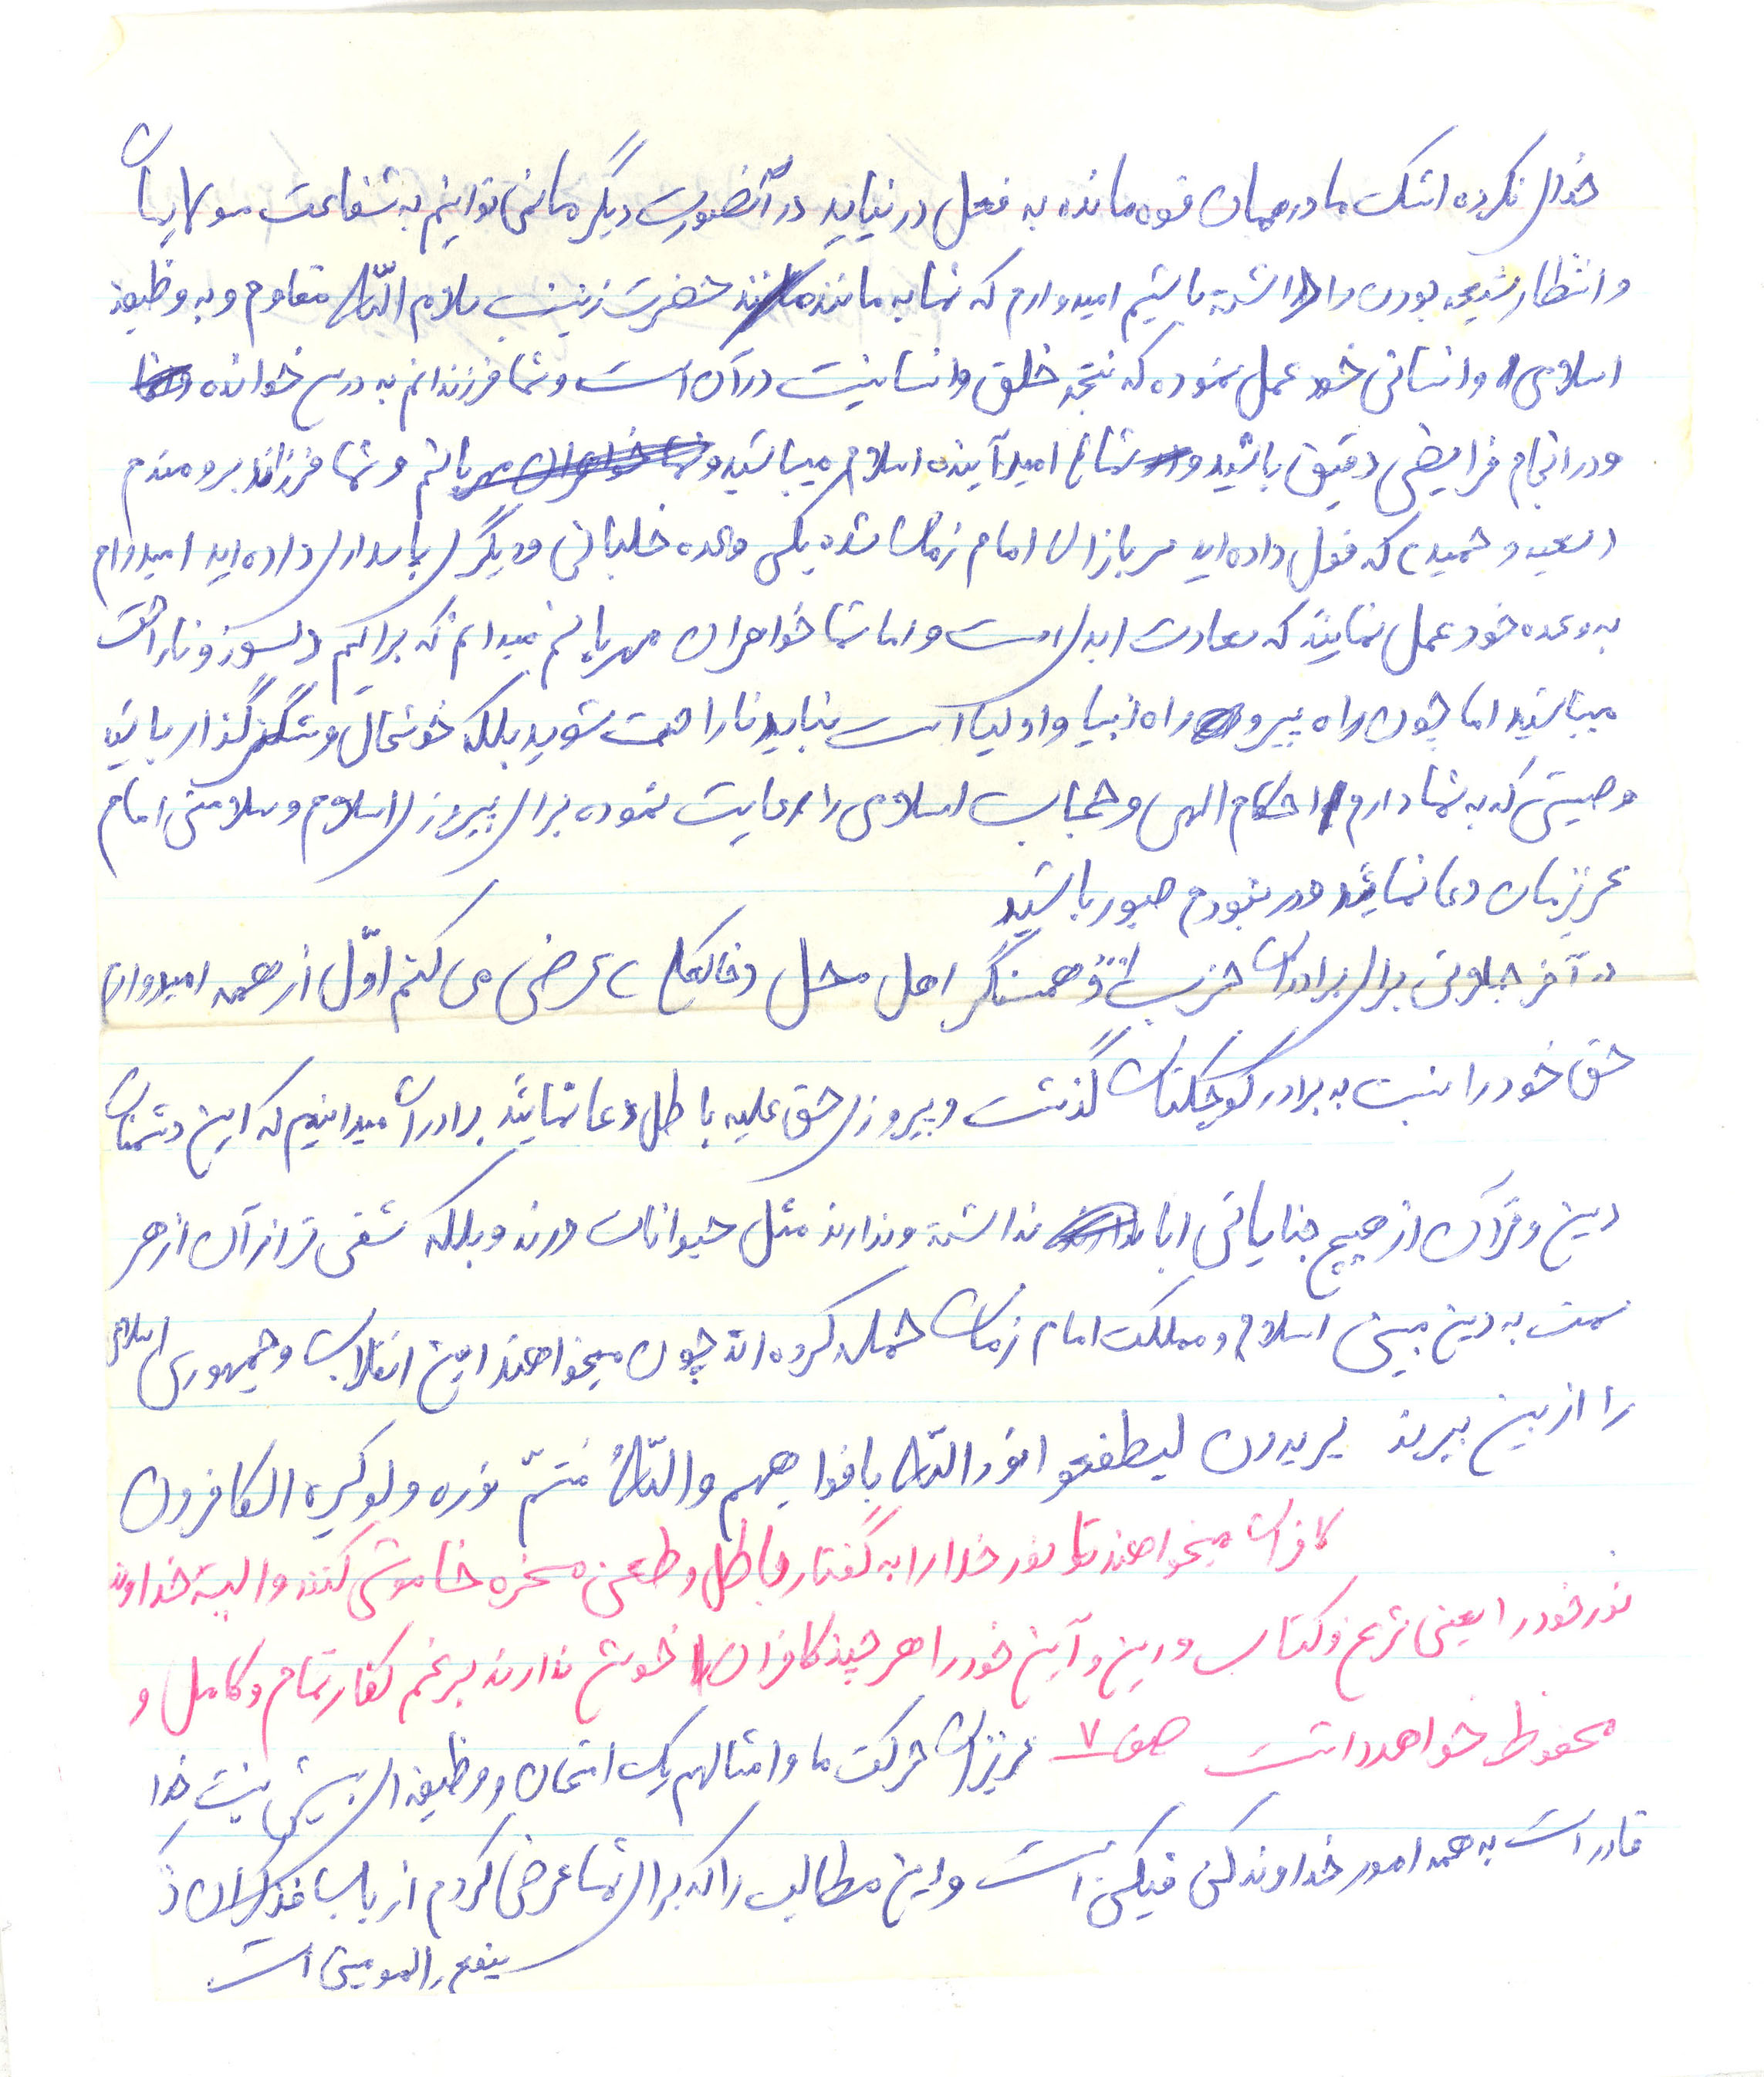 خدای نکرده اشک ما در همان قوه مانده به فعل در نیاید در آنصورت دیگر ما نمی توانیم به شفاعت مولایمان
و انتظار شیعه بودن را داشته باشیم امیدوارم که شما به مانند حضرت زینب سلام اللّه مقاوم و به وظیفه
اسلامی و انسانی خود عمل نموده که نتیجه خلق و انسانیت در آن است و شما فرزندانم به درس خوانده
و در انجام فرایض دقیق باشید و شماها امید آینده اسلام میباشید و شما فرزندان برومندم
سعید و حمید که قول داده اید سربازان امام زمان شده یکی وعده خلبانی و دیگری پاسداری داده اید امیدوارم
به وعده خود عمل نمایند که سعادت ابدی است و اما شما خواهران مهربانم میدانم که برایم دلسوز و ناراحت
میباشید اما چون راه پیرو راه انبیا و اولیا است نباید ناراحت شوید بلکه خوشحال و شکرگذار باشید
وصیتی که به شما دارم احکام الهی و حجاب اسلامی را رعایت نموده برای پیروزی اسلام و سلامتی امام
عزیزمان دعا نمائید و در نبودم صبور باشید
در آخر جملاتی برای برادران حزب اللّه و همسنگر اهل محل عرض می کنم اوّل از همه امیدوارم
حق خود را نسبت به برادر کوچکتان گذشت و پیروزی حق علیه باطل دعا نمائید برادران میدانیم که این دشمنان
دین و قرآن از هیچ جنایاتی ابا نداشته و ندارند مثل حیوانات درنده بلکه شقی تر از آن از هر
سمت به دین مبین اسلام و مملکت امام زمان حمله کرده اند چون میخواهند این انقلاب و جمهوری اسلامی
را از بین ببرند یریدون لیطفئوا نور اللّه بافواههم واللّهُ مُتمّ نوره ولو کره الکافرون
کافران میخواهند تا نور خدا را به گفتار باطل و طعن و مسخره خاموش کنند و البته خداوند
نور خود را یعنی شرع و کتاب و دین و آین خود را هر چند کافران خوش ندارند برغم کفار تمام و کامل و
محفوظ خواهد داشت صف ۷ عزیزان حرکت ما و امثالهم یک امتحان و وظیفه ای بیش نیست خدا
قادر است به همه امور خداوند کن فیکن است و این مطالب را که برای شما عرض کردم از باب فذکر ان ذک
ینفع المومنین است